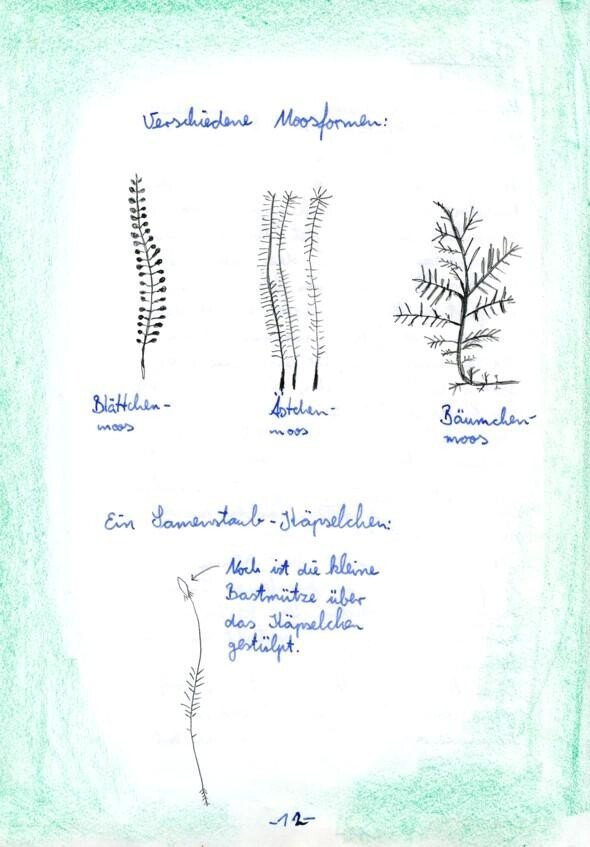 Verschiedene Moosformen:
Blättchen-
moos
Ästchen-
moos
Bäumchen-
moos
Ein Samenstaub-Käpselchen:
Noch ist die kleine
Bastmütze über
das Käpselchen
gestülpt.
-12-